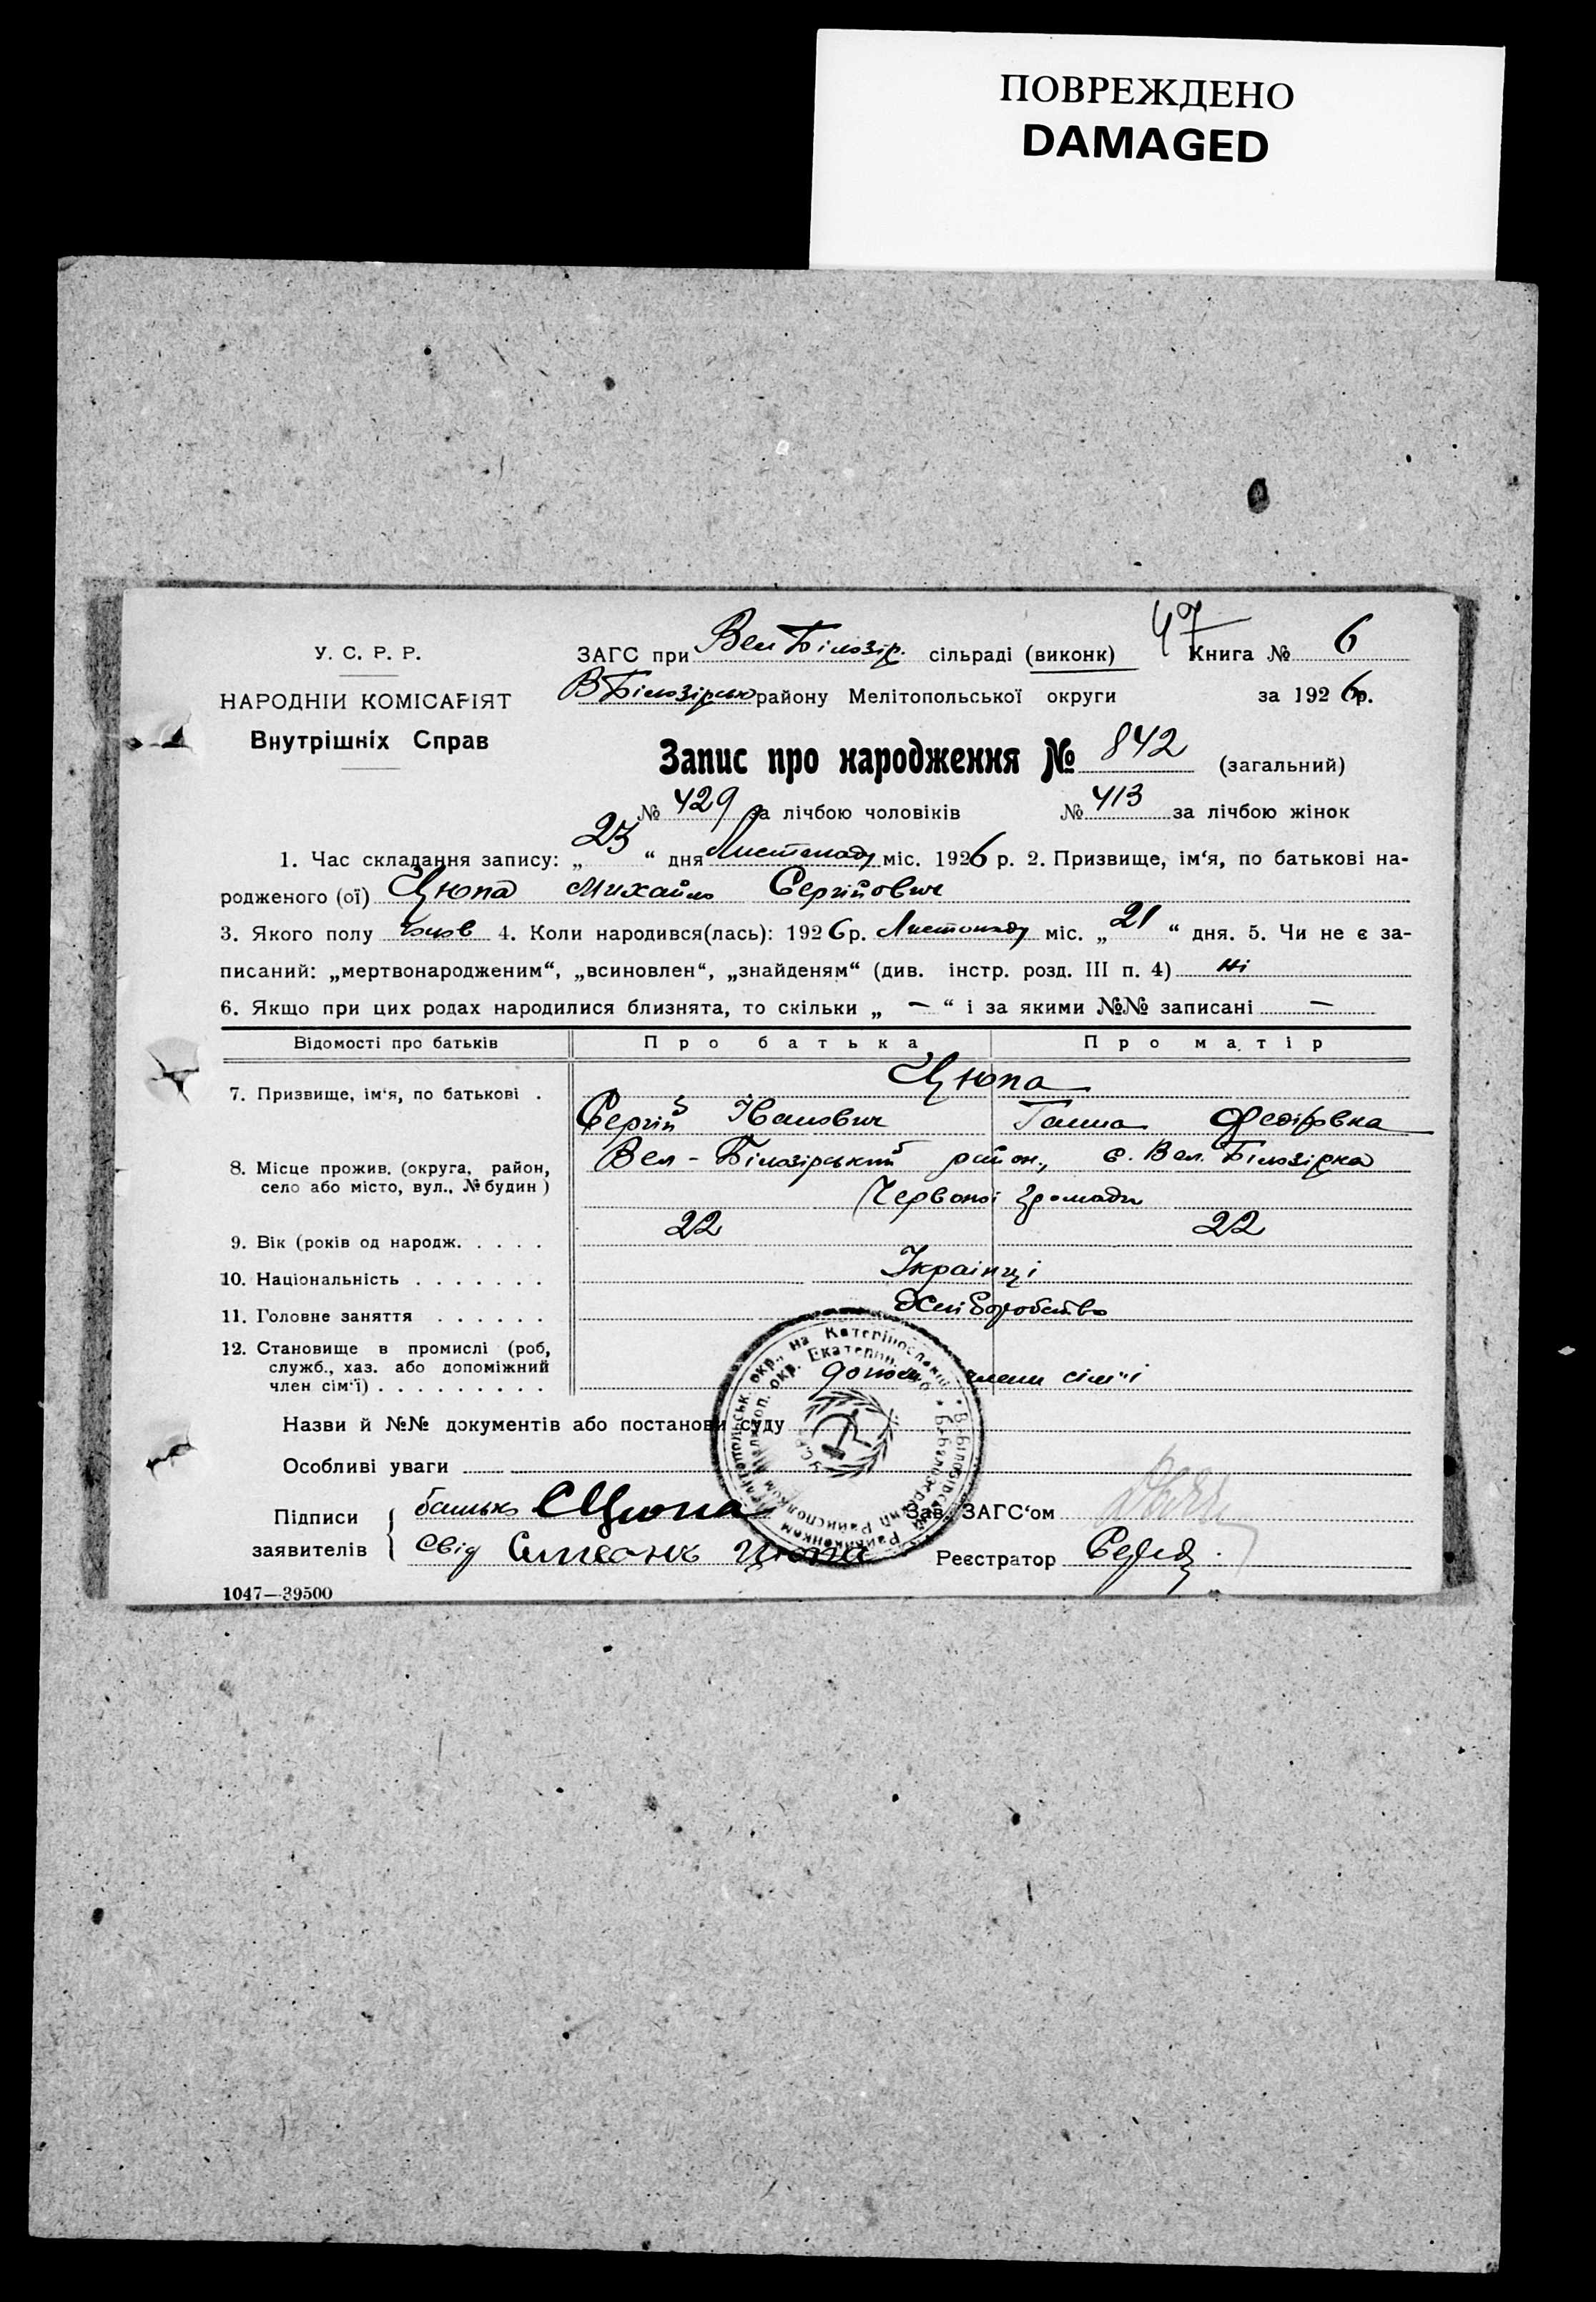 ПОВРЕЖДЕНО
DAMAGED
У. С. Р. Р.
НАРОДНІЙ КОМІСАРІЯТ
Внутрішніх Справ
47
ЗАГС при Вел Білозір. сільраді (виконк) Книга № 6
ВБілозірськ району Мелітопольської округи за 1926 р.
Запис про народження № 842 (загальний)
№ 429 за лічбою чоловіків № 413 за лічбою жінок
1. Час складання запису: „23“ дня Листопаду міс. 1926 р. 2. Призвище, ім‘я, по батькові на-
родженого (ої) Цюпа Михайло Сергійович
3. Якого полу чолов 4. Коли народився(лась): 1926 р. Листопаду міс. „21“ дня. 5. Чи не є за-
писаний: „мертвонародженим“, „всиновлен“, „знайденям“ (див. інстр. розд. III п. 4) ні
6. Якщо при цих родах народилися близнята, то скільки „ — “ і за якими №№ записані —
Відомості про батьків Про батька Про матір
7. Призвище, ім‘я, по батькові . Цюпа
Сергій Іванович Ганна Федірівна
8. Місце прожив. (округа, район, село або місто, вул., № будин) Вел-Білозірський район, с. Вел. Білозірка
Червоної громади
9. Вік (років од народж. . . . . 22 22
10. Національність . . . . . . . Українці
11. Головне заняття . . . . . . Хліборобство
12. Становище в промислі (роб,
служб., хаз. або допоміжний
член сім‘ї) . . . . . . . . . допом члени сім"ї
Назви й №№ документів або постанови суду
Особливі уваги
Підписи
заявителів
батько СЦюпа
Свід Цюпа
Зав. ЗАГС‘ом
Реєстратор
1047—39500